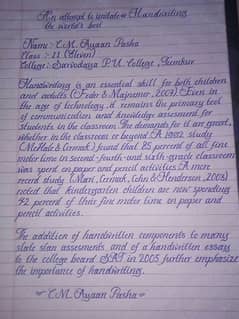 An attempt to imitate Handwriting
the world's best
Name : C.M. Ayaan Pasha
Class : 11 (Eleven)
College : Sarvodaya P.U. College, Tumkur
Handwriting is an essential skill for both children
and adults (Feder & Majnemer, 2007). Even in
the age of technology, it remains the primary tool
of communication and knowledge assesment for
students in the classroom. The demands for it are great,
whether in the classroom or beyond. A 1992 study
(McHale & Cermak) found that 85 percent of all fine
motor time in second-fourth-and sixth-grade classroom
was spent on paper and pencil activities. A more
recent study (Marr, Cermak, Cohn & Henderson, 2003)
noted that kindergarten children are now spending
42 percent of their fine motor time on paper and
pencil activities.
The addition of handwritten components to many
state stan assesments, and of a handwritten essay
to the college board SAT in 2005 further emphasize
the importance of handwriting.
C.M. Ayaan Pasha